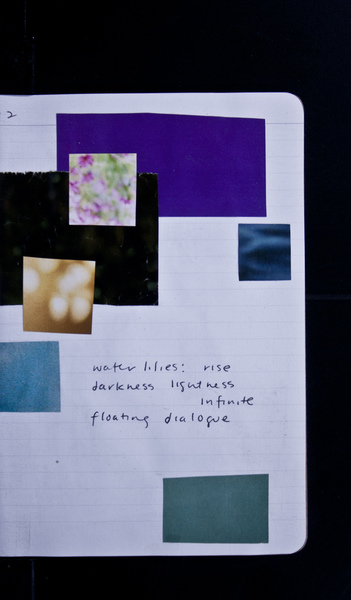 2
water lilies: rise
darkness lightness
infinite
floating dialogue